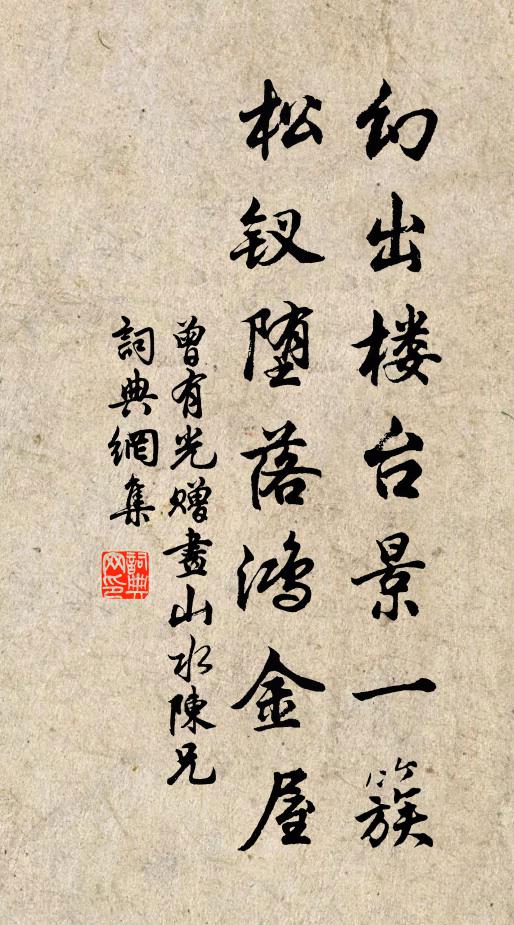 幻出楼台景一簇
松钗堕落鸿金屋
曾有光赠畫山水陳兄
詞典網集
詞典网印